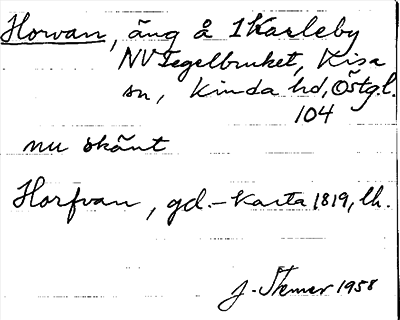 Horvan, äng å 1 Karleby
NV Tegelbruket, Kisa
sn, Kinda hd, Östgl.
104
nu skänt
Horfvan, gd. - Karta 1819, lh.
J. Stemer 1958